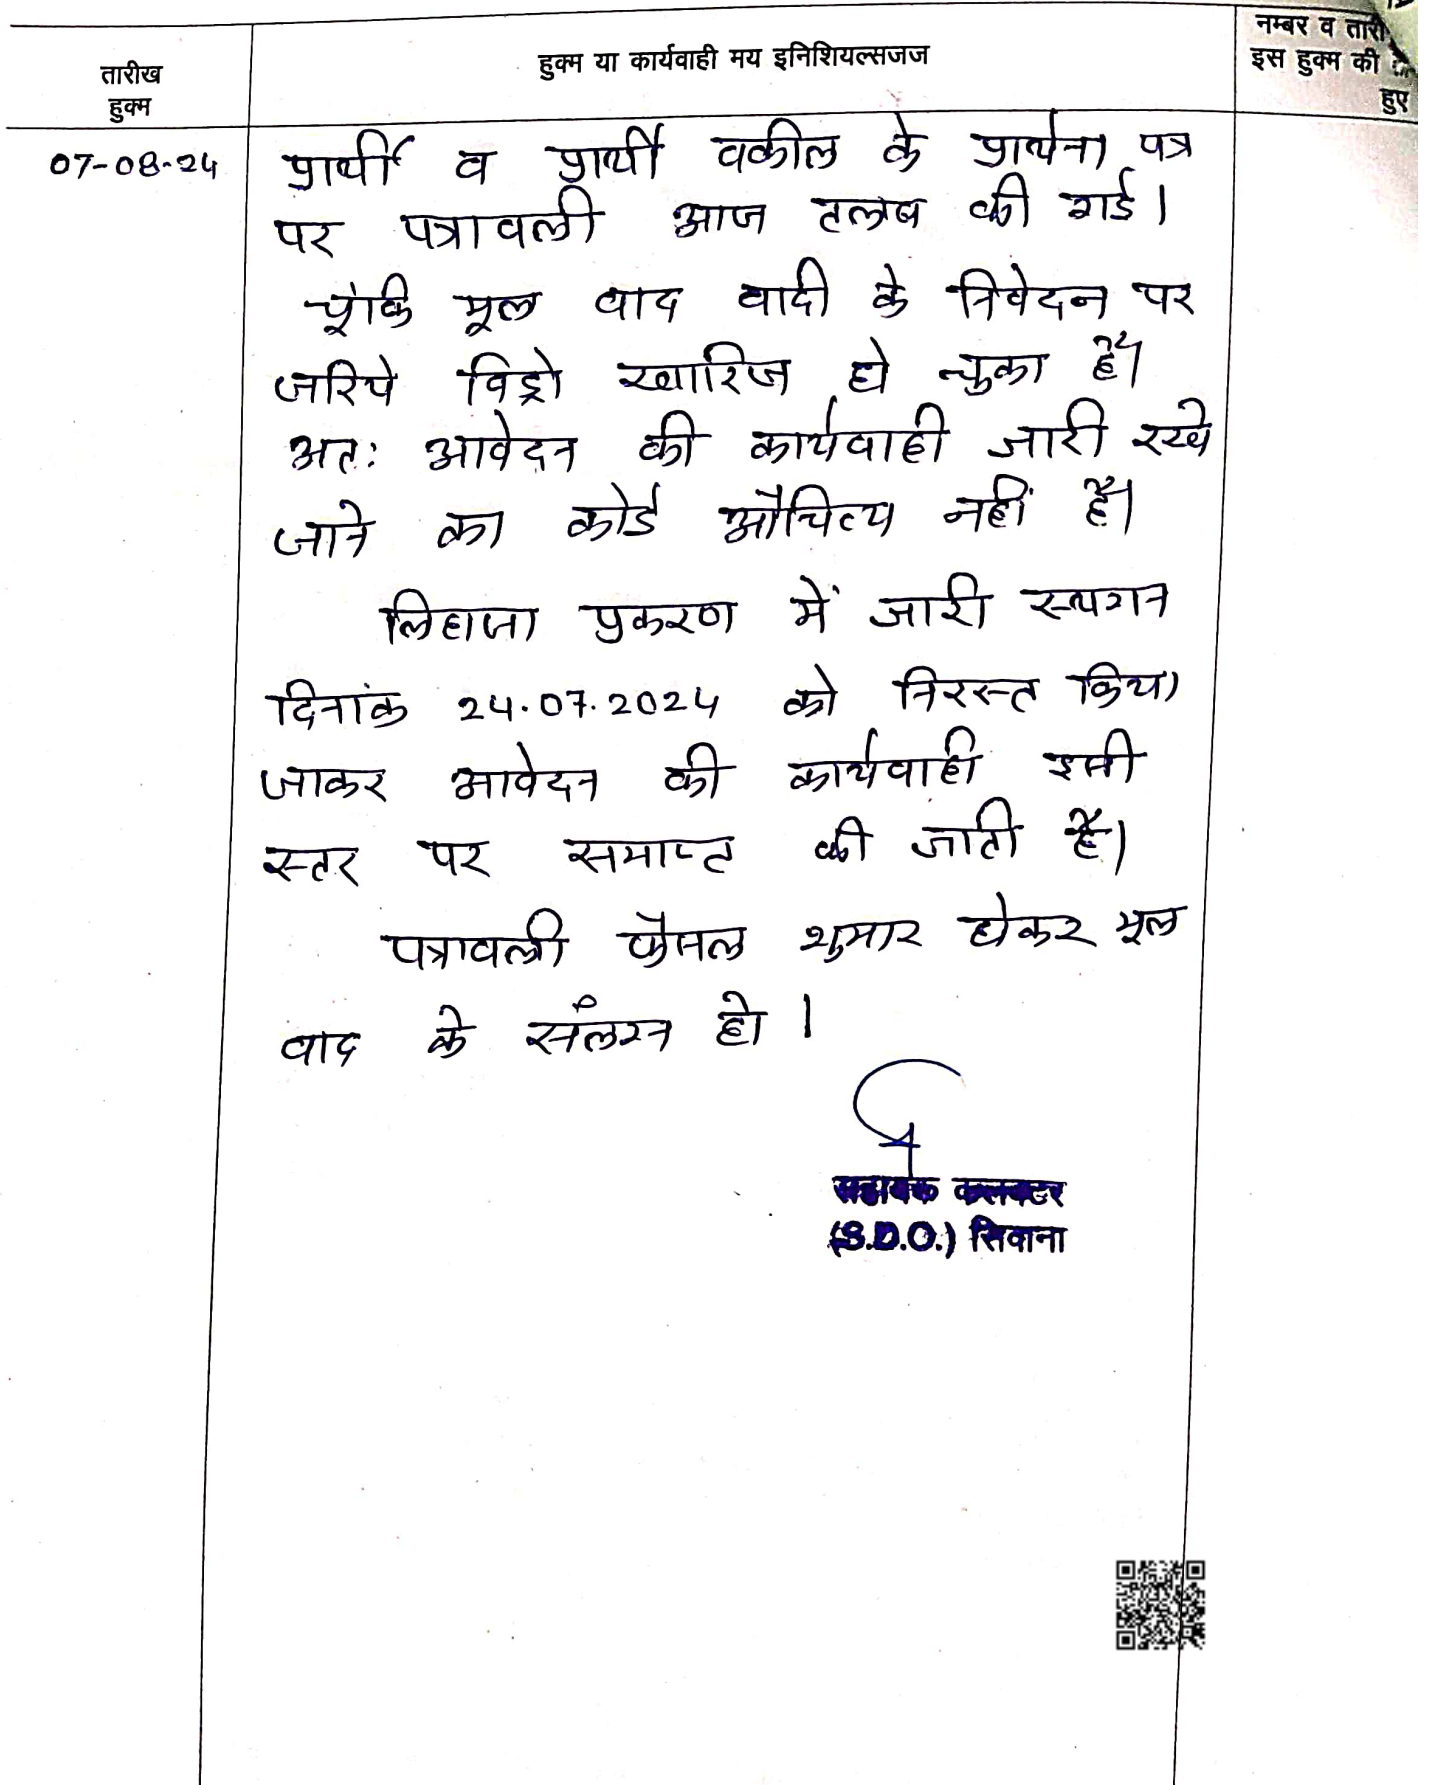 तारीख
हुक्म
हुक्म या कार्यवाही मय इनिशियल्सजज
नम्बर व तारी
इस हुक्म की
हुए
07-08-24
प्रार्थी व प्रार्थी वकील के प्रार्थना पत्र
पर पत्रावली आज तलब की गई।
चूंकि मूल वाद वादी के निवेदन पर
जरिये विड्रो खारिज हो चुका है।
अतः आवेदन की कार्यवाही जारी रखे
जाने का कोई औचित्य नहीं है।
लिहाजा प्रकरण में जारी स्थगन
दिनांक 24.07.2024 को निरस्त किया
जाकर आवेदन की कार्यवाही इसी
स्तर पर समाप्त की जाती है।
पत्रावली फैसल शुमार होकर मूल
वाद के संलग्न हो।
सहायक कलक्टर
(S.D.O.) सिवाना